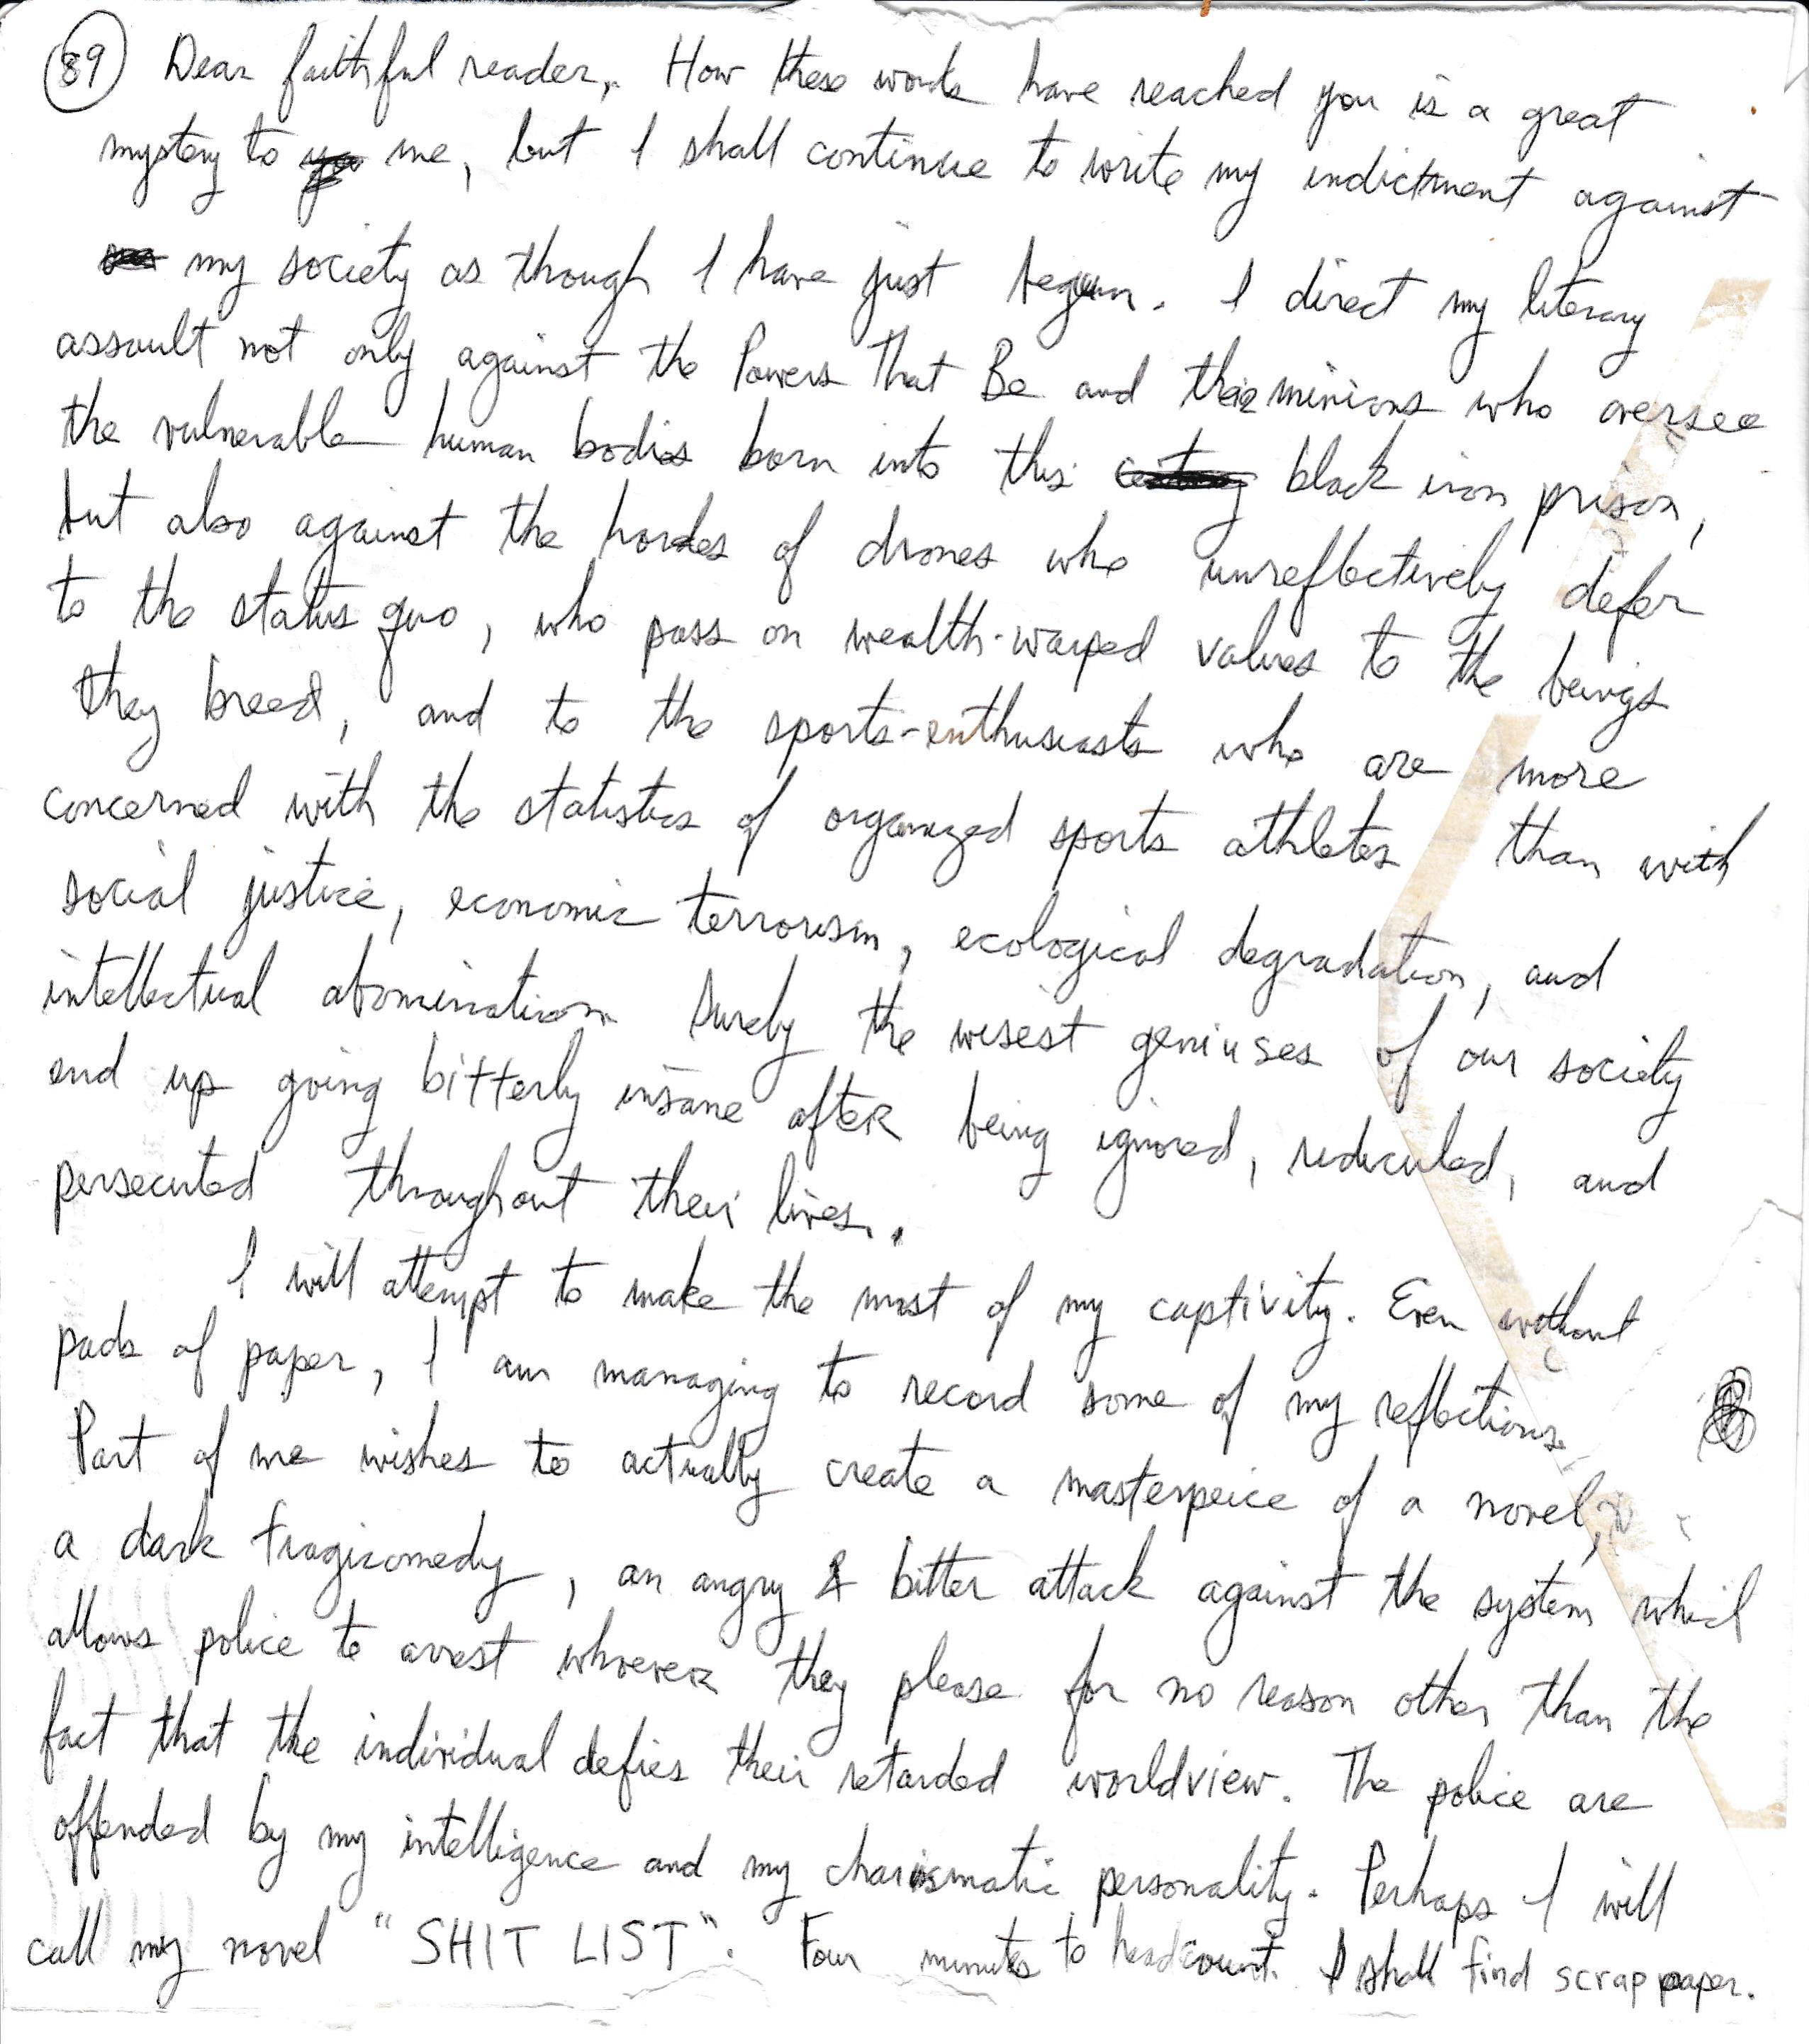 89 Dear faithful reader, How these words have reached you is a great
mystery to me, but I shall continue to write my indictment against
my society as though I have just begun. I direct my literary
assault not only against the Powers That Be and their minions who oversee
the vulnerable human bodies born into this black iron prison,
but also against the hordes of drones who unreflectively defer
to the status quo, who pass on wealth-warped values to the beings
they breed, and to the sports-enthusiasts who are more
concerned with the statistics of organized sports athletes than with
social justice, economic terrorism, ecological degradation, and
intellectual abomination. Surely the wisest geniuses of our society
end up going bitterly insane after being ignored, rediculed, and
persecuted throughout their lives.
I will attempt to make the most of my captivity. Even without
pads of paper, I am managing to record some of my reflections.
Part of me wishes to actually create a masterpeice of a novel,
a dark tragicomedy, an angry & bitter attack against the system which
allows police to arrest whoever they please for no reason other than the
fact that the individual defies their retarded worldview. The police are
offended by my intelligence and my charismatic personality. Perhaps I will
call my novel "SHIT LIST". Four minutes to headcount. I shall find scrap paper.